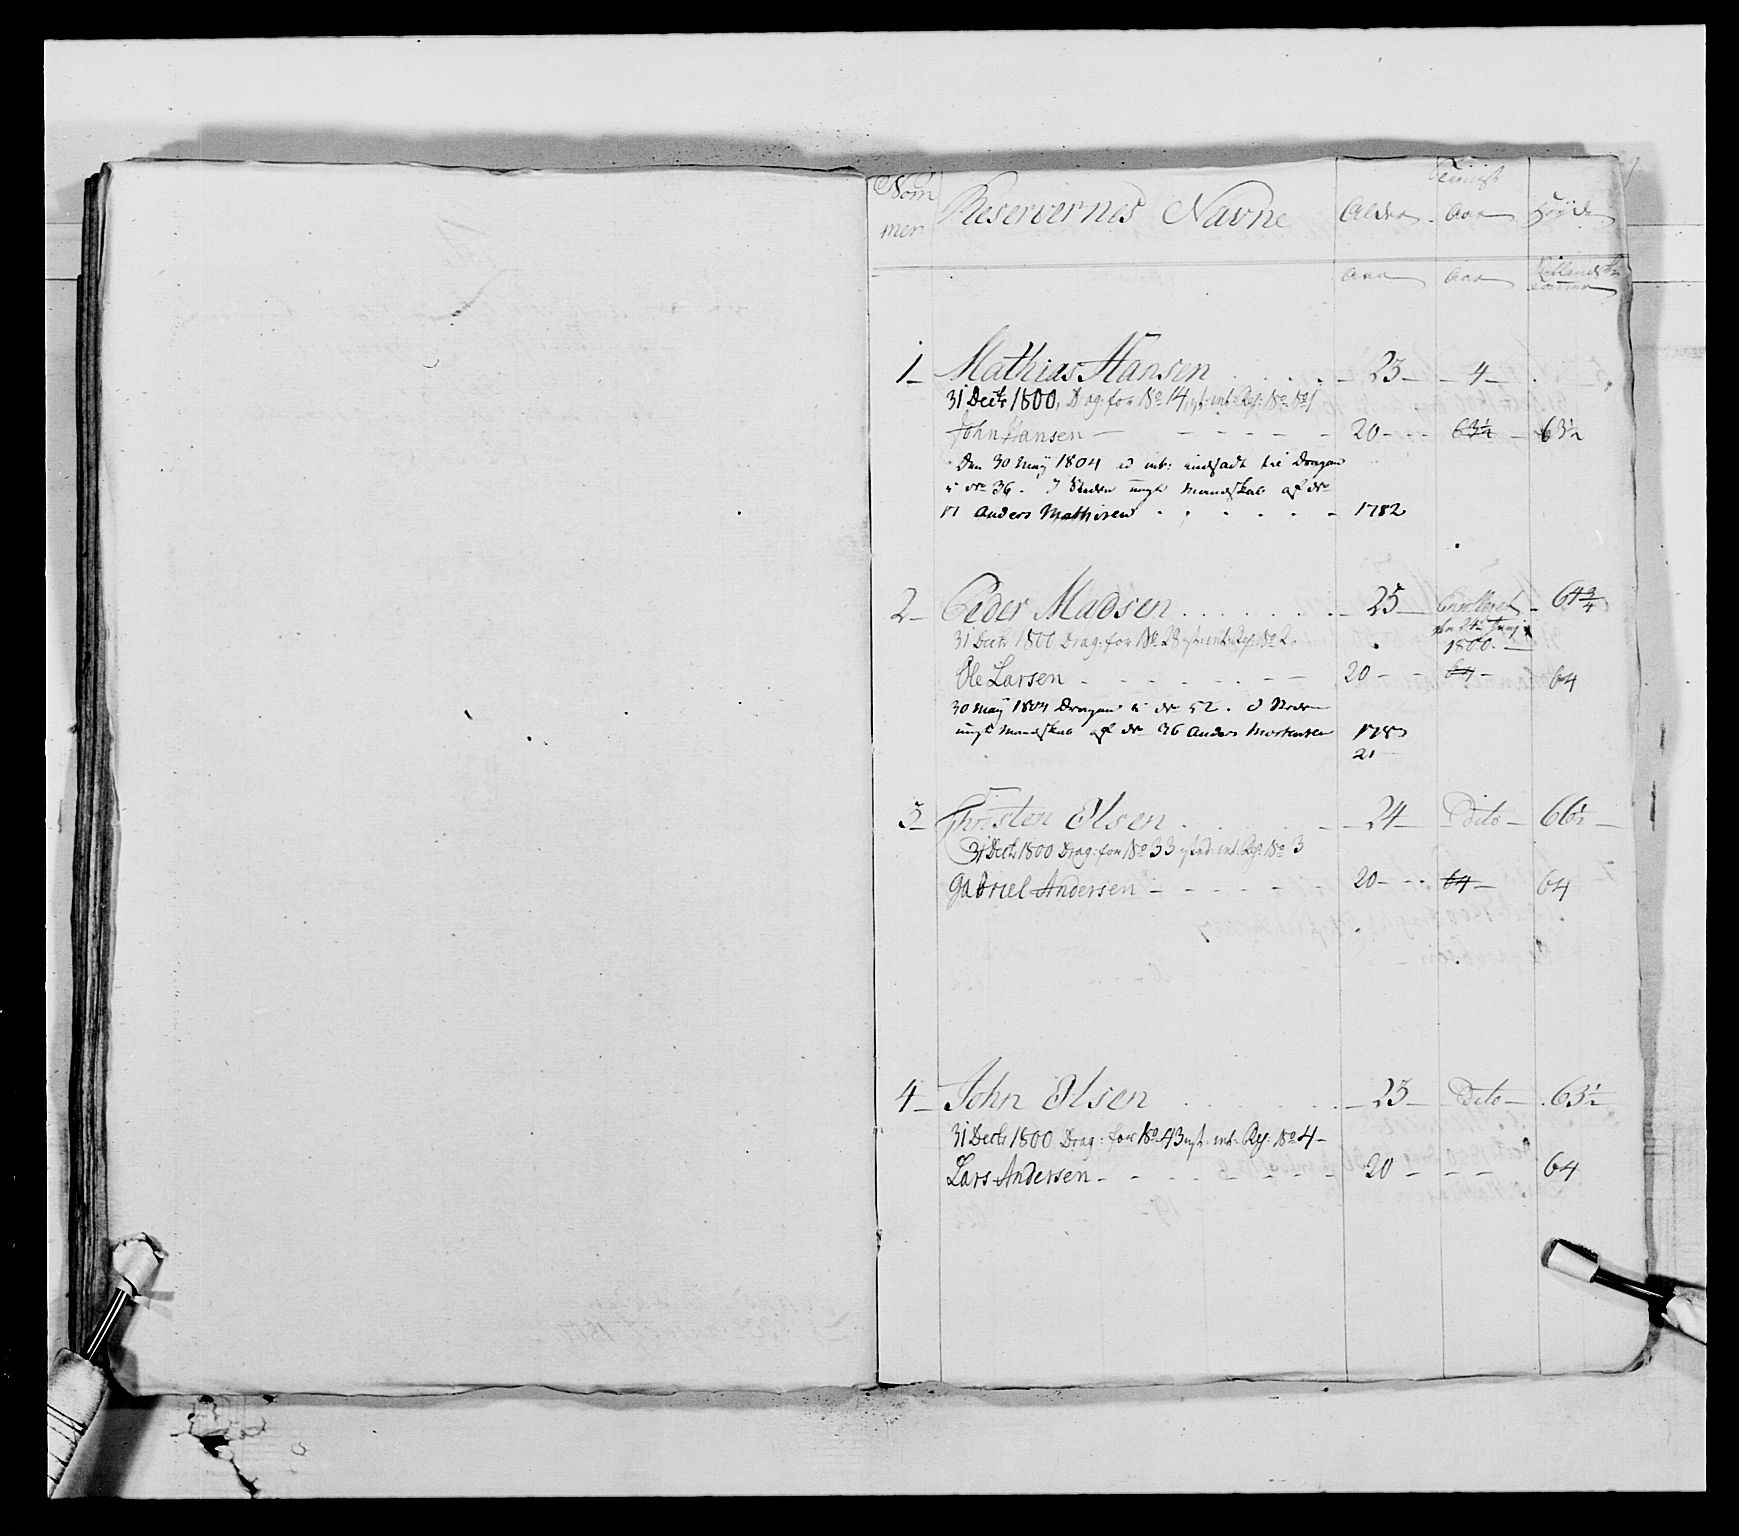 Nom
mer
Reservernes Navne
Alder
Tieniste
Aar
Høyde
Aar
Aar
Tomer
1 Mathias Hansen 23 4
31 Decbr 1800, Drag: for No 14, int: Res: No 1
John Hansen 20 63½ 63½
Den 30 Maÿ 1804 indsadt til Dragon
No 36. I Steden ungt Mandskab af No
11 Anders Mathisen 1782
2 Peder Madsen 25 Enrolleret 64¾
den 24de Junj
1800
31 Decbr 1800 Drag: for No 28 int: Res: No 2
Ole Larsen 20 64 64
30 Maÿ 1804 Dragon No 52. I Steden
ungt Mandskab af No 36 Anders Mortensen 1783
21
3 Christen Olsen 24 Dito 66½
31 Decbr 1800 Drag: for No 33 int: Res: No 3
Gabriel Andersen 20 64 64
4 John Olsen 23 Dito 63½
31 Decbr 1800 Drag: for No 43 int: Res: No 4
Lars Andersen 20 64